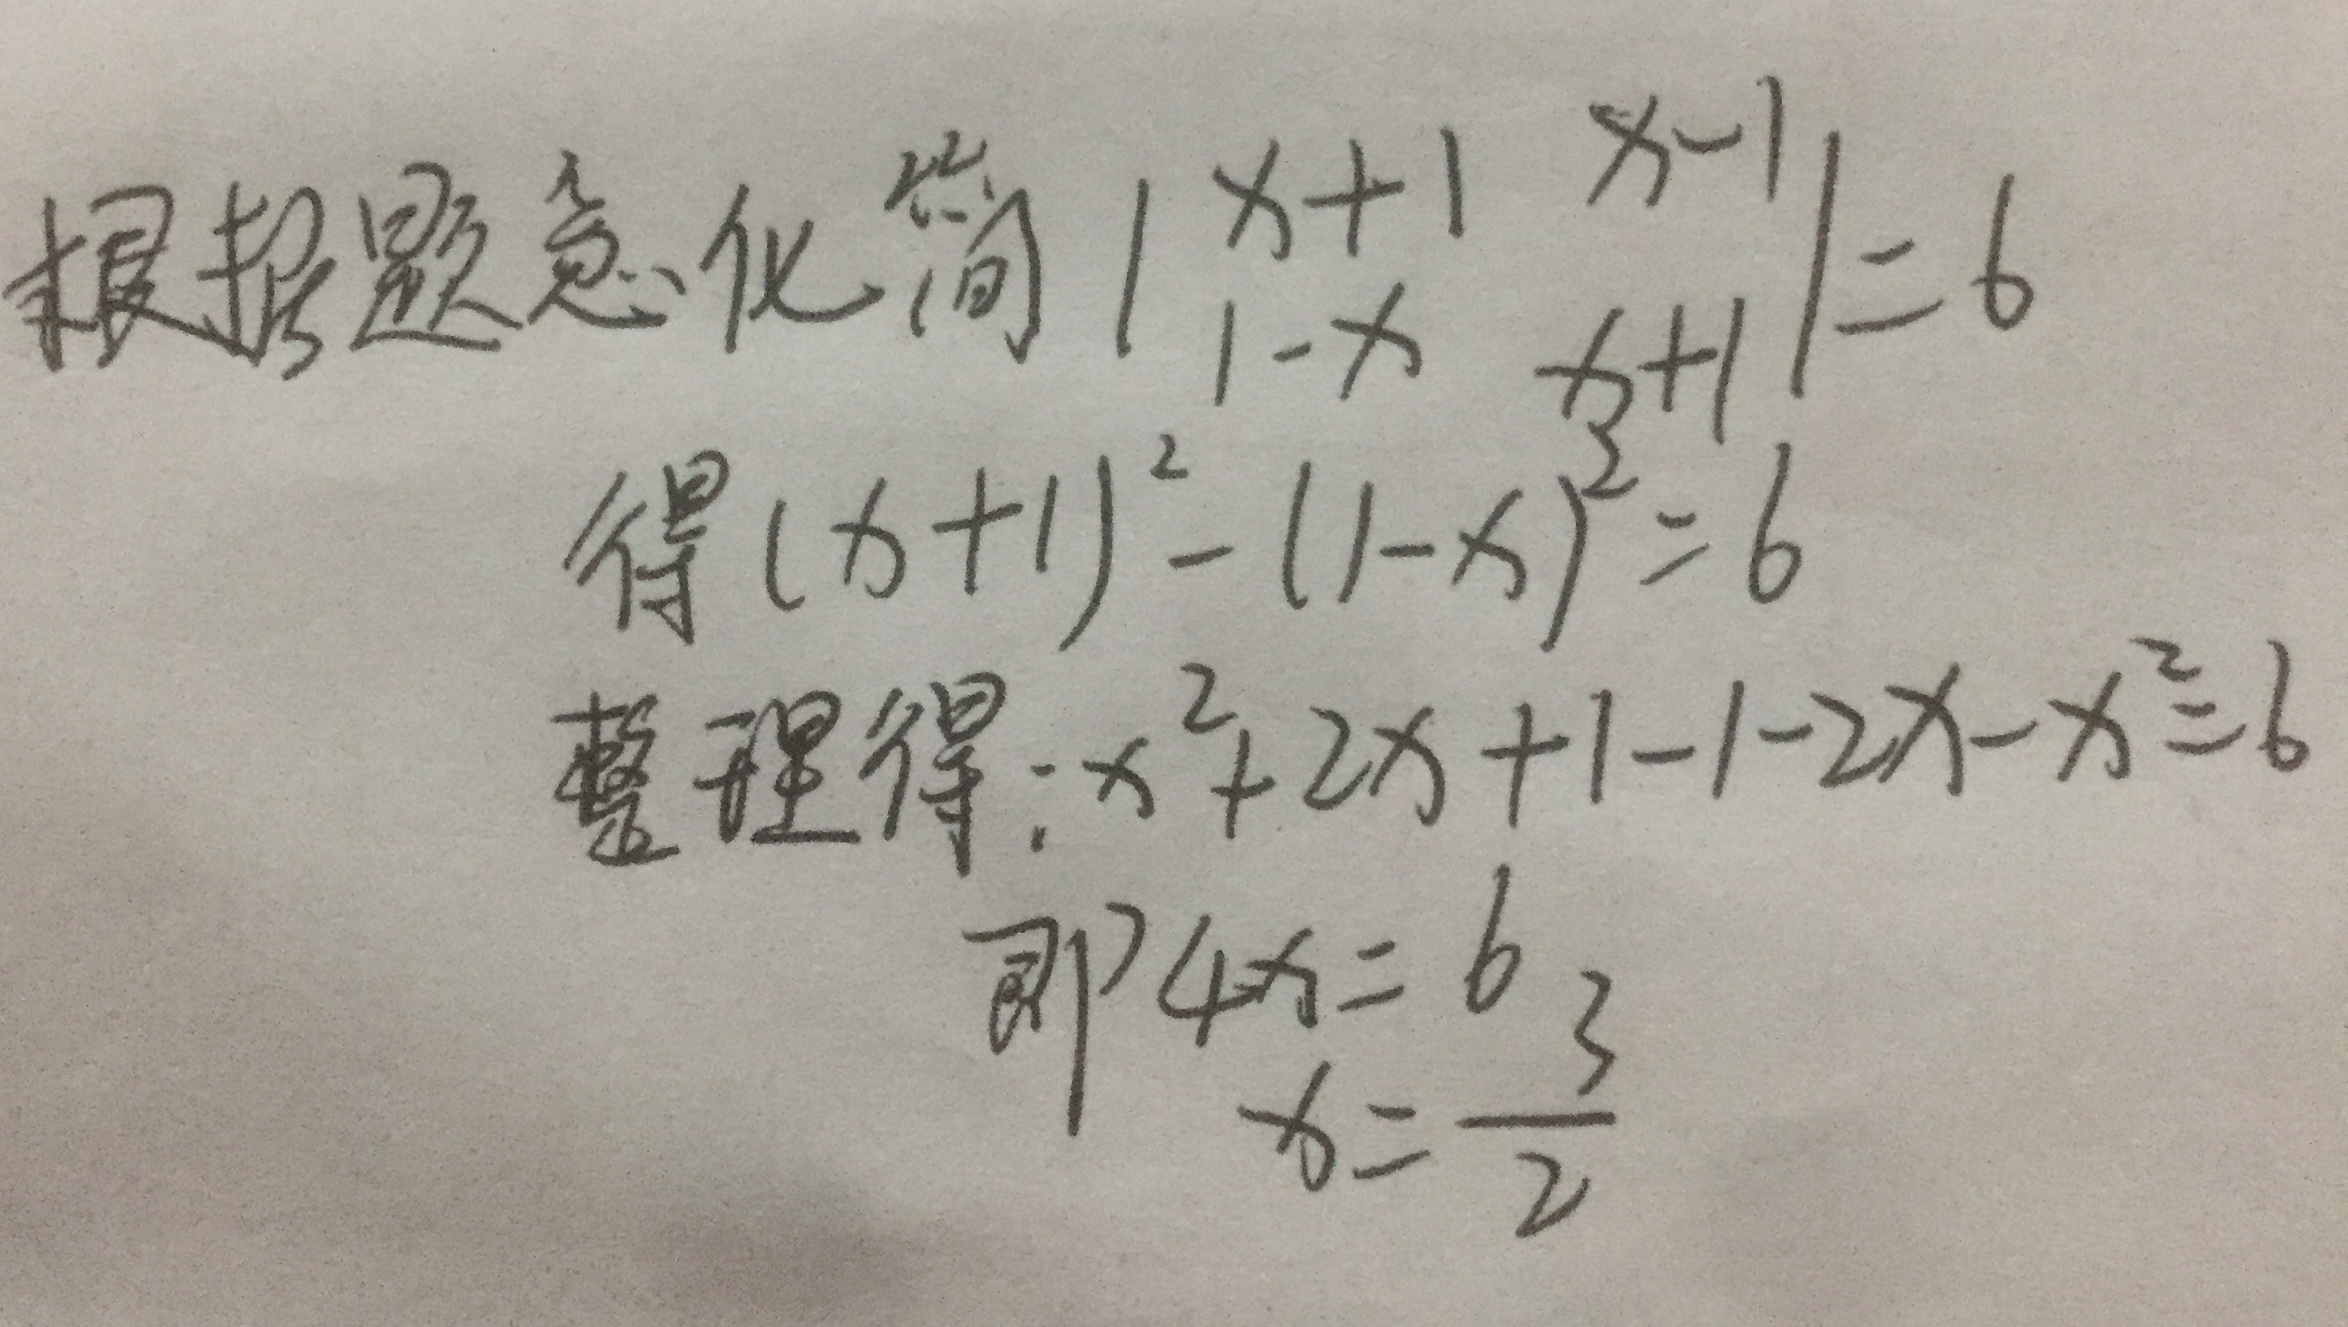 根据题意化简 | x+1 x-1 | = 6
1-x x+1
得 (x+1)² - (1-x)² = 6
整理得: x² + 2x + 1 - 1 - 2x - x² = 6
即 4x = 6
x = 3/2